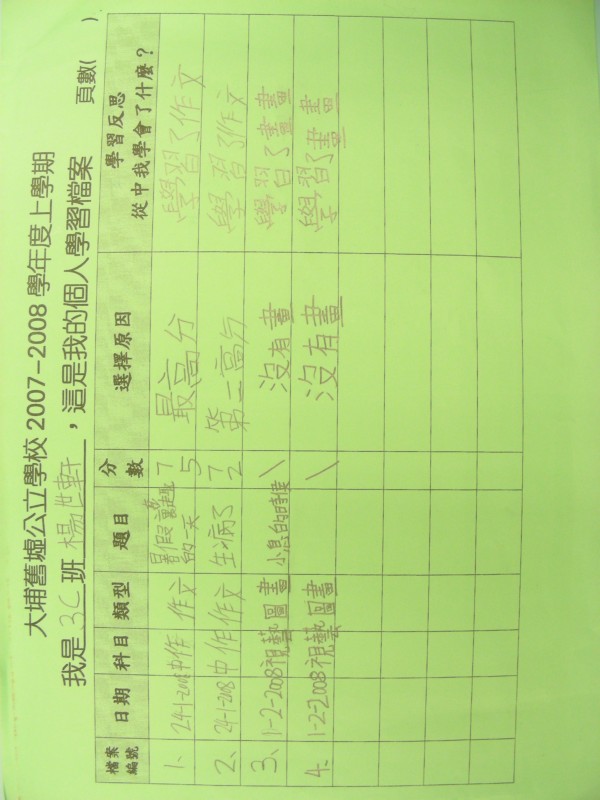 大埔舊墟公立學校 2007-2008 學年度上學期
我是 3C 班 楊世軒，這是我的個人學習檔案 頁數( )
檔案編號 日期 科目 類型 題目 分數 選擇原因 學習反思 從中我學會了什麼？
1、 24-1-2008 中作 作文 暑假 趣的一天 75 最高分 學習了作文
2、 24-1-2008 中作 作文 生病了 72 第二高分 學習了作文
3、 1-2-2008 視藝 圖畫 小息的時候 \ 沒有畫 學習了畫畫
4、 1-2-2008 視藝 圖畫 \ 沒有畫 學習了畫畫